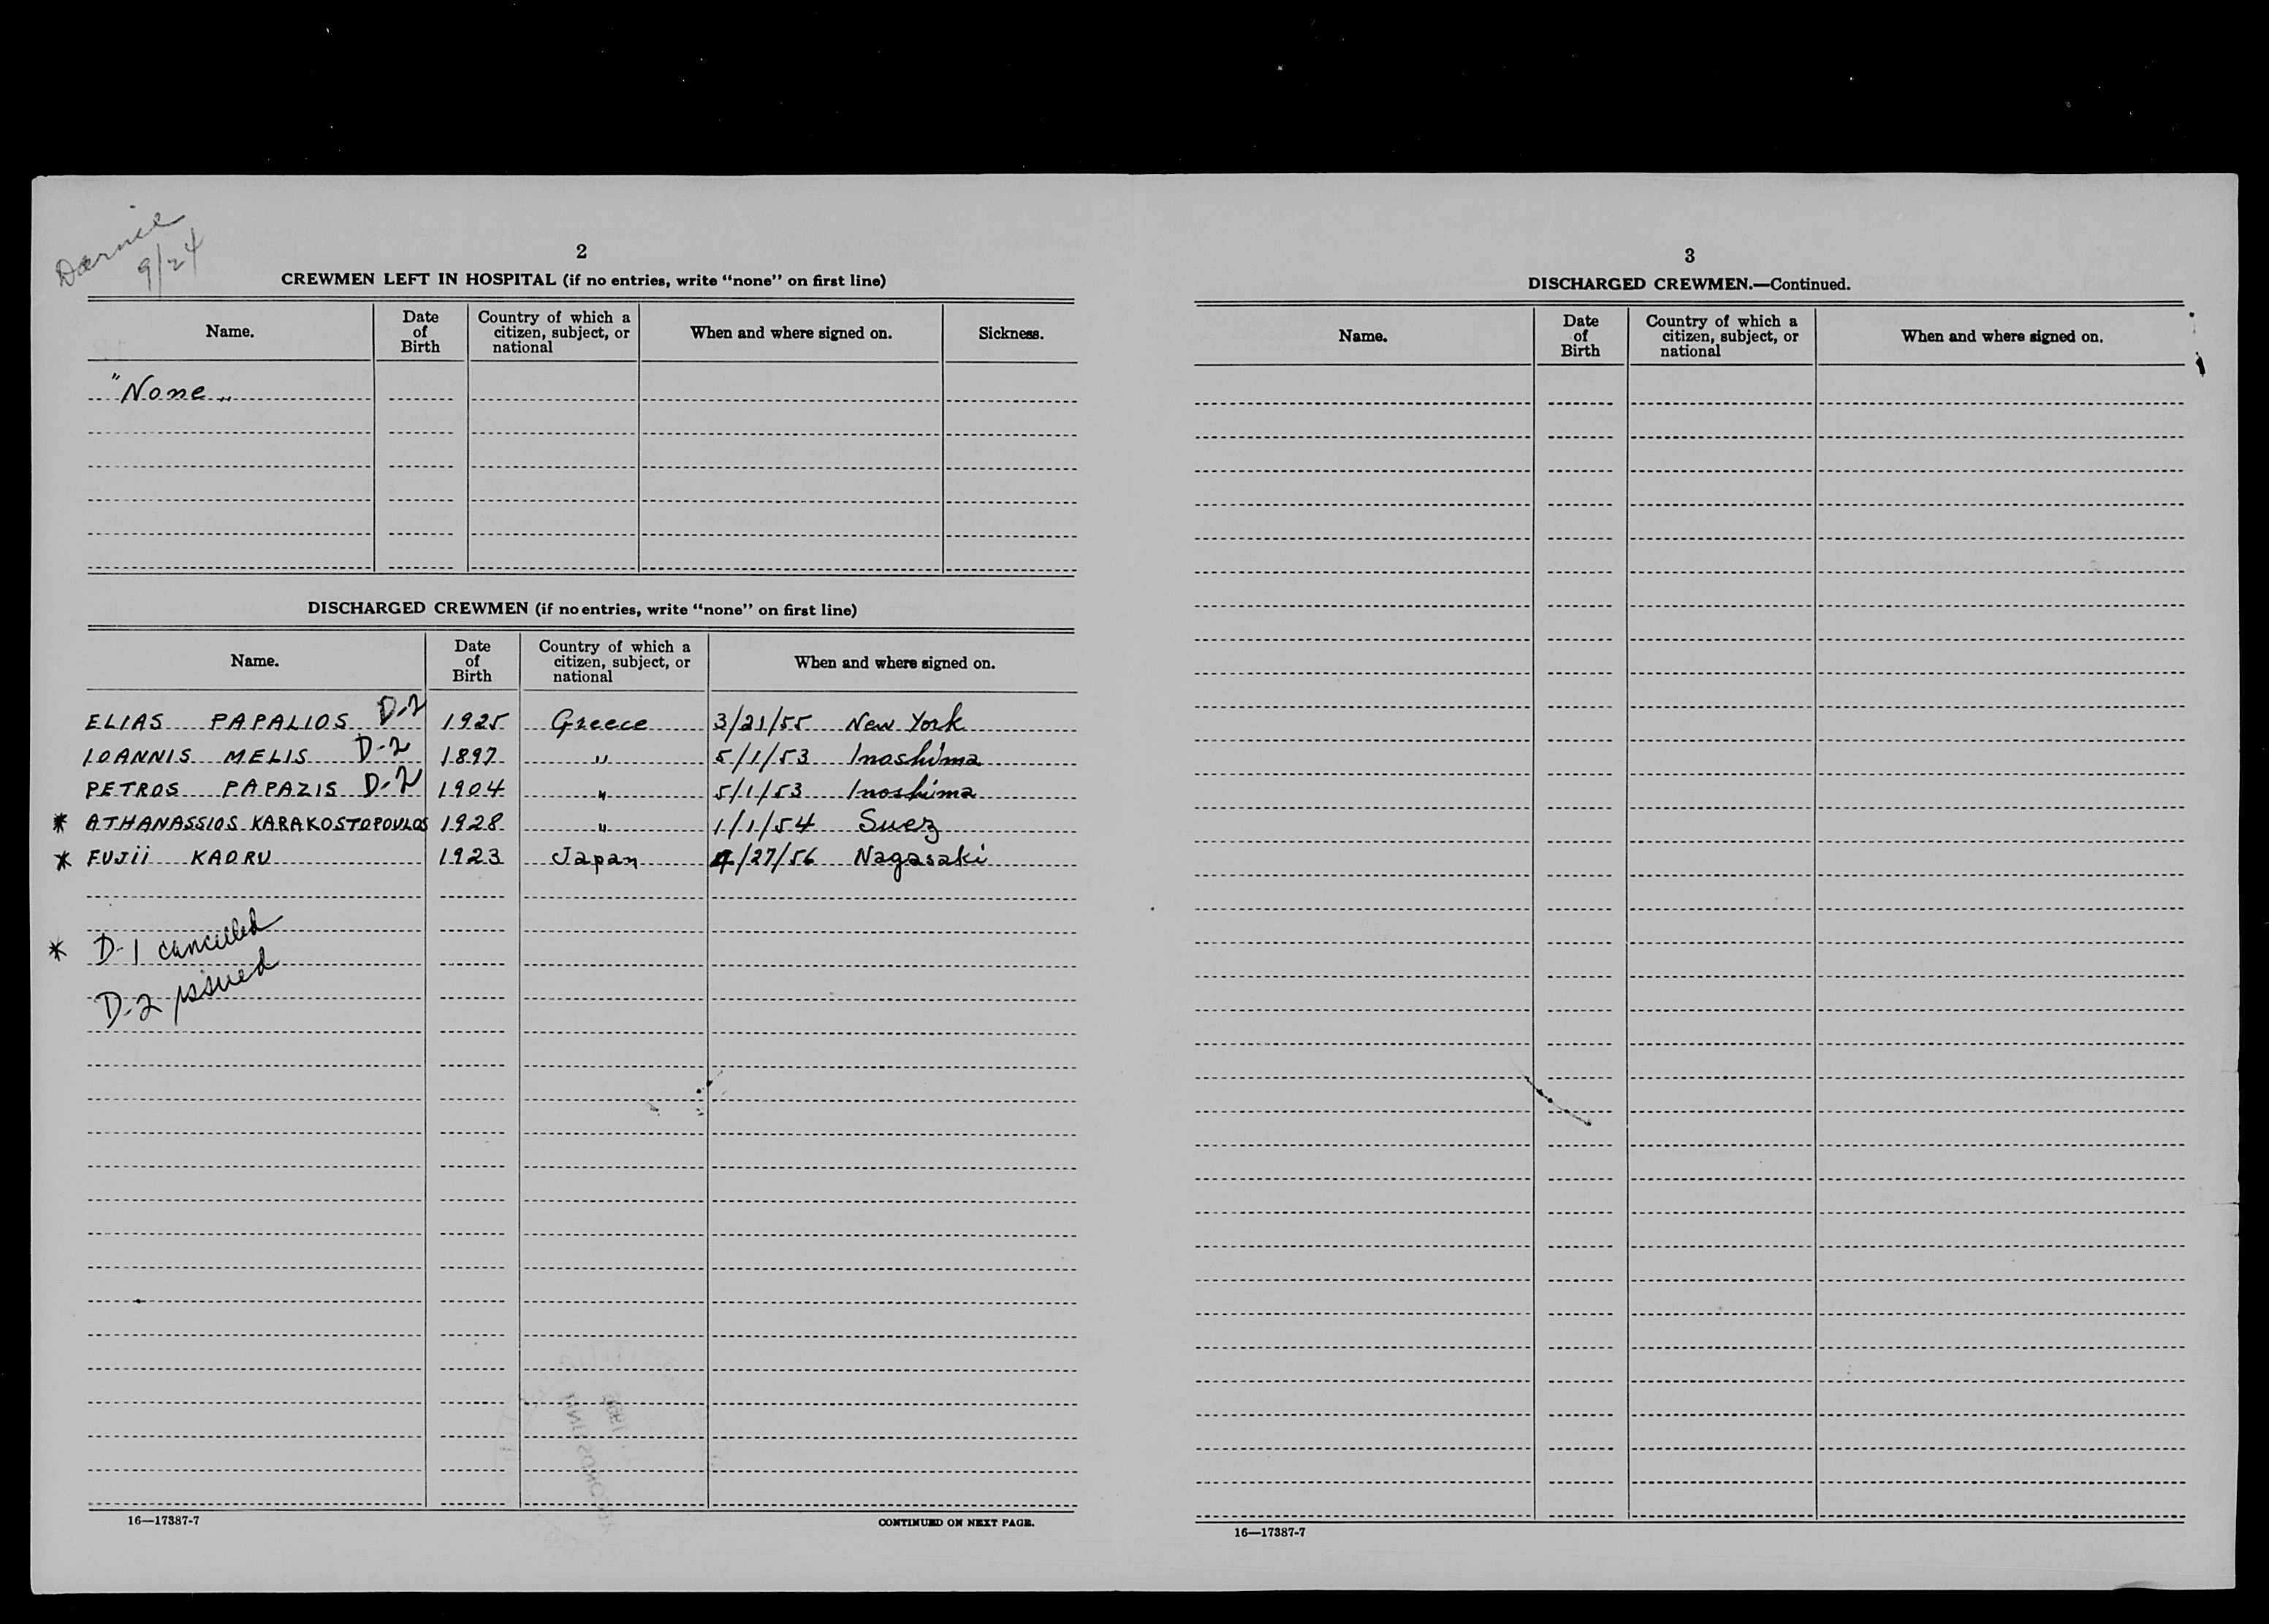 9/24
2
CREWMEN LEFT IN HOSPITAL (if no entries, write "none" on first line)
Name. Date of Birth Country of which a citizen, subject, or national When and where signed on. Sickness.
"None"
DISCHARGED CREWMEN (if no entries, write "none" on first line)
Name. Date of Birth Country of which a citizen, subject, or national When and where signed on.
ELIAS PAPALIOS D-2 1925 Greece 3/21/55 New York
IOANNIS MELIS D-2 1897 " 5/1/53 Inoshima
PETROS PAPAZIS D-2 1904 " 5/1/53 Inoshima
* ATHANASSIOS KARAKOSTOPOULOS 1928 " 1/1/54 Suez
* FUJii KAORU 1923 Japan 4/27/56 Nagasaki
* D-1 cancelled
D-2 issued
16—17387-7 CONTINUED ON NEXT PAGE.
3
DISCHARGED CREWMEN.—Continued.
Name. Date of Birth Country of which a citizen, subject, or national When and where signed on.
16—17387-7